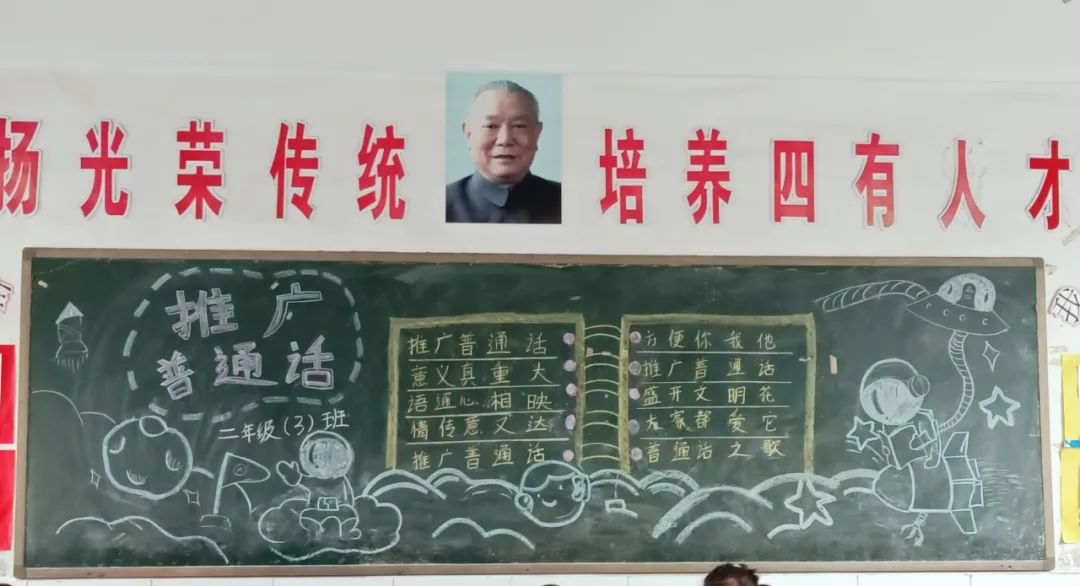 扬光荣传统
培养四有人才
推广
普通话
二年级(3)班
推广普通话
意义真重大
语通心相映
情传意又达
推广普通话
方便你我他
推广普通话
盛开文明花
大家都爱它
普通话之歌